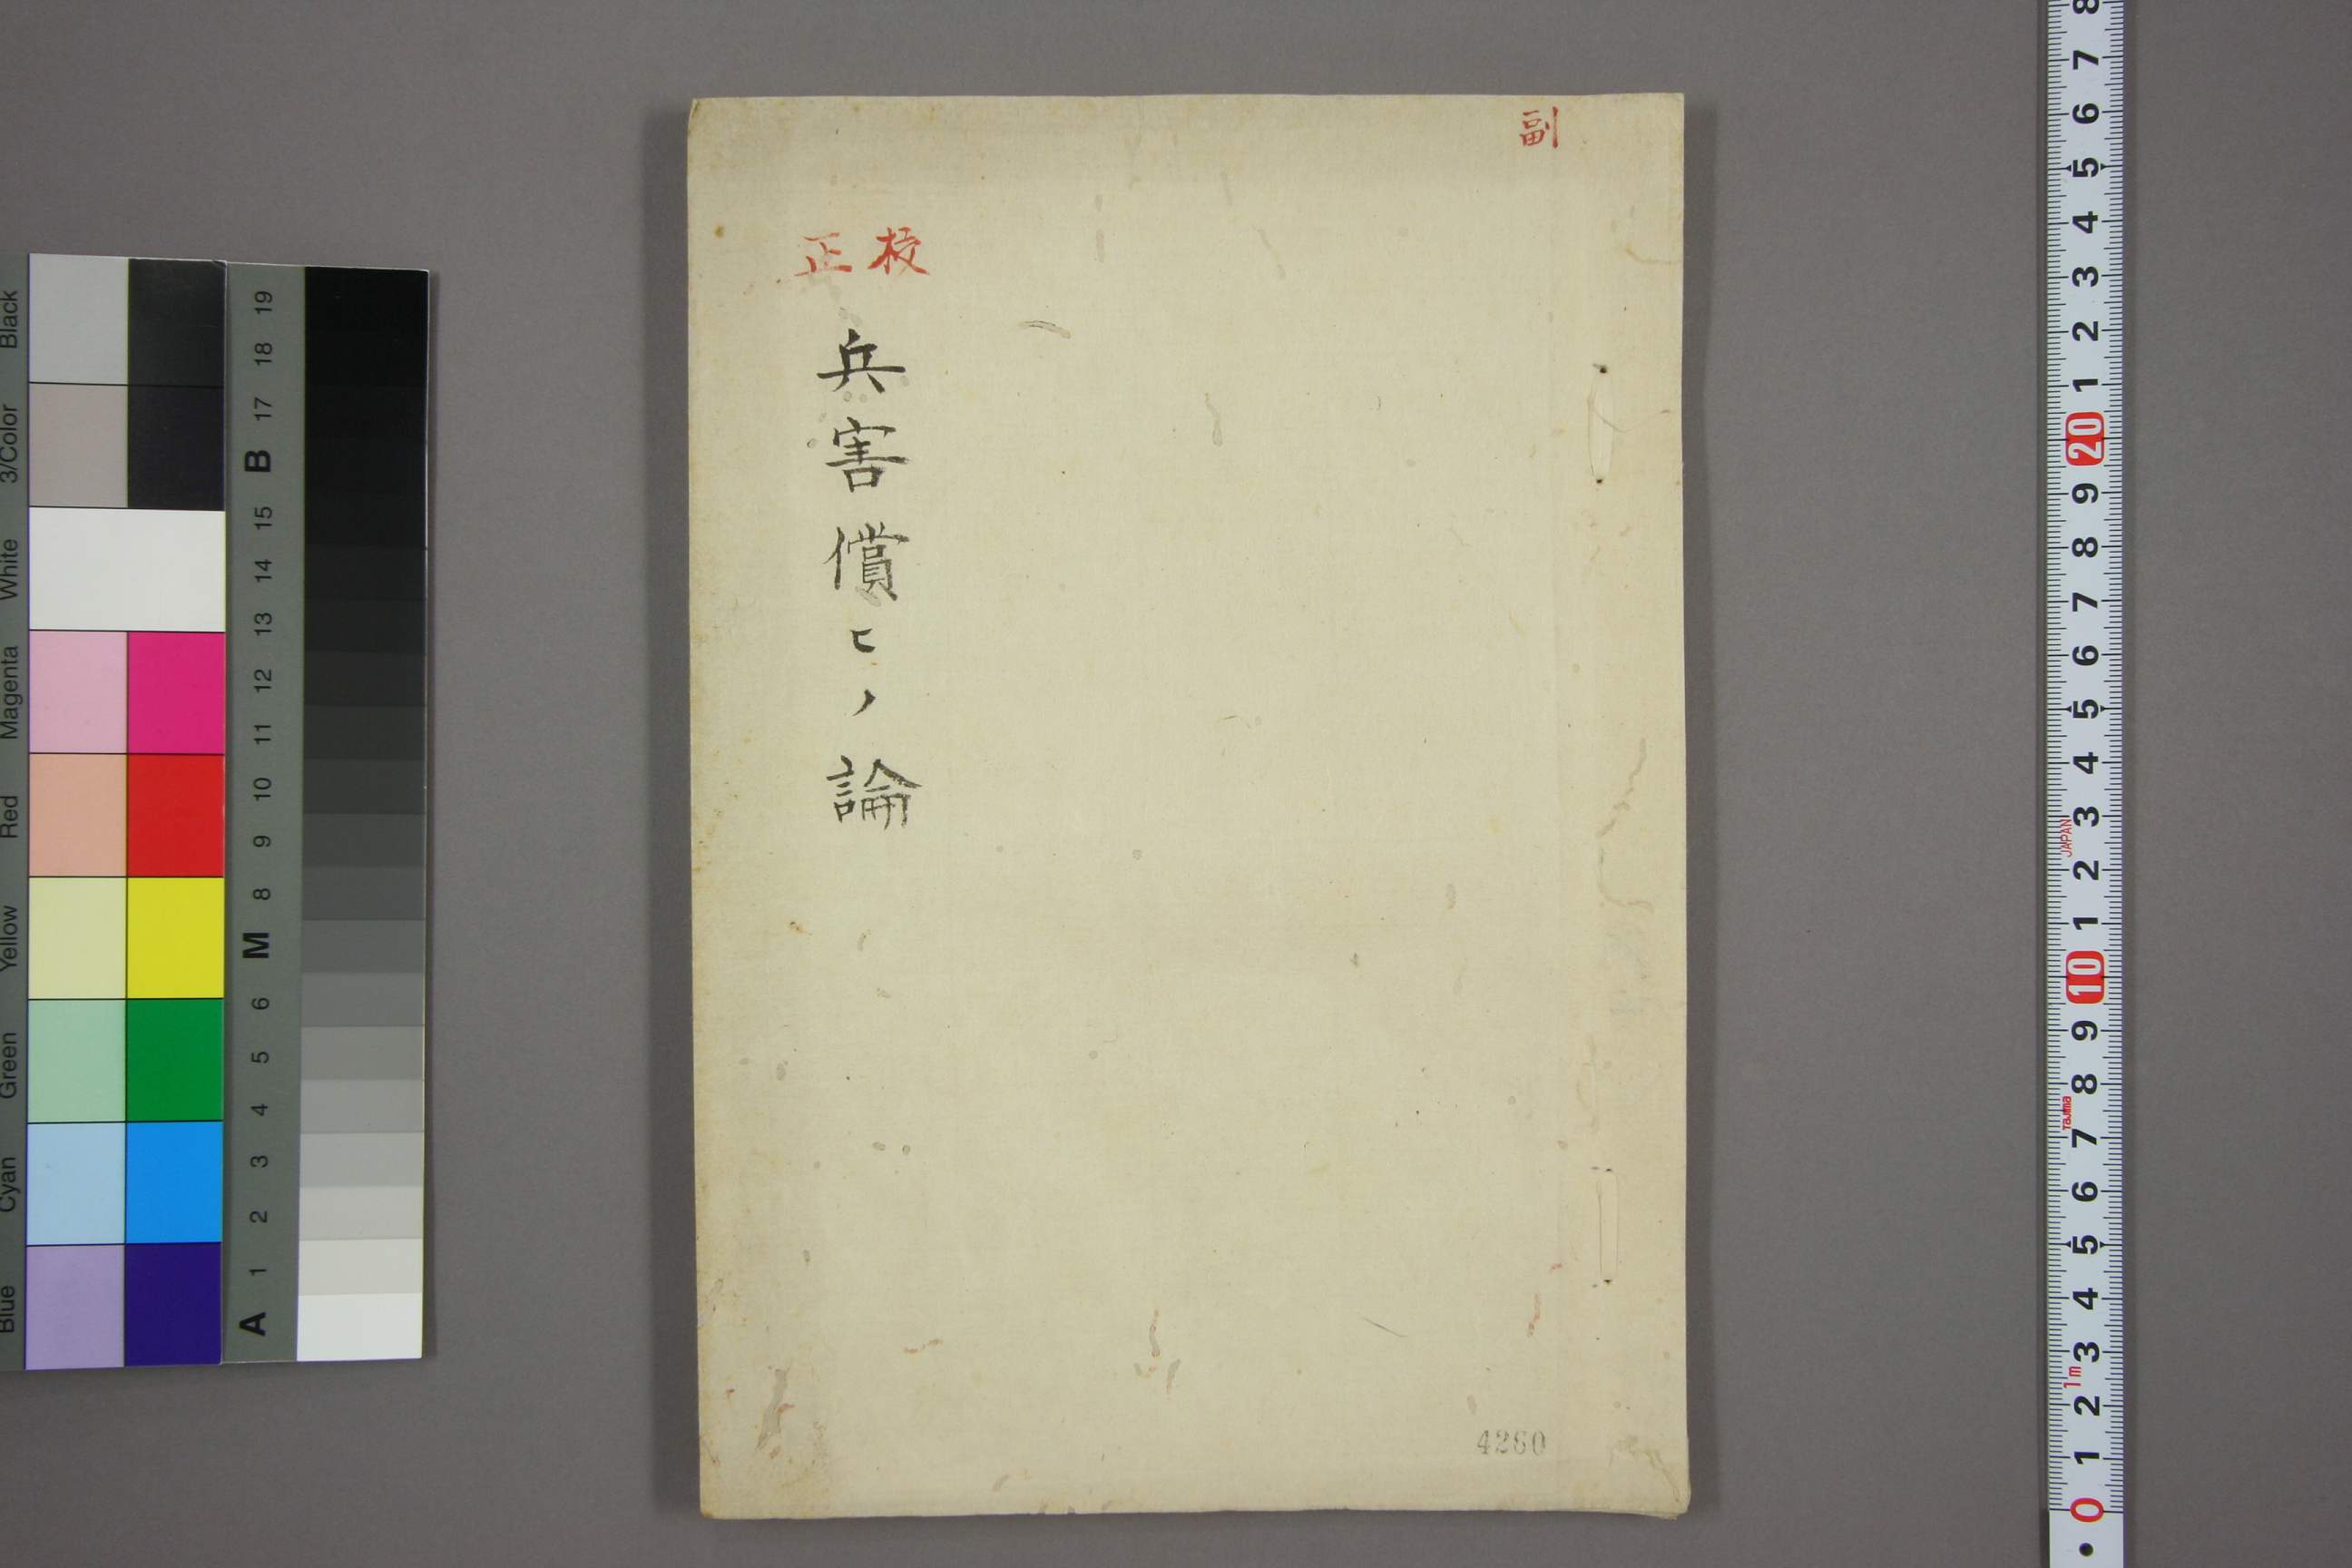 副
校正
兵害償ヒノ論
4260
Black
3/Color
White
Magenta
Red
Yellow
Green
Cyan
Blue
19
18
17
B
15
14
13
12
11
10
9
8
M
6
5
4
3
2
1
A
8
7
6
5
4
3
2
1
20
9
8
7
6
5
4
3
JAPAN
2
1
10
9
8
Tajima
7
6
5
4
3
1m
2
1
0